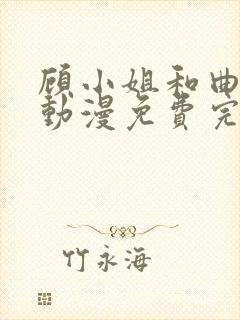 顾小姐和曲
動漫免費完
竹永海